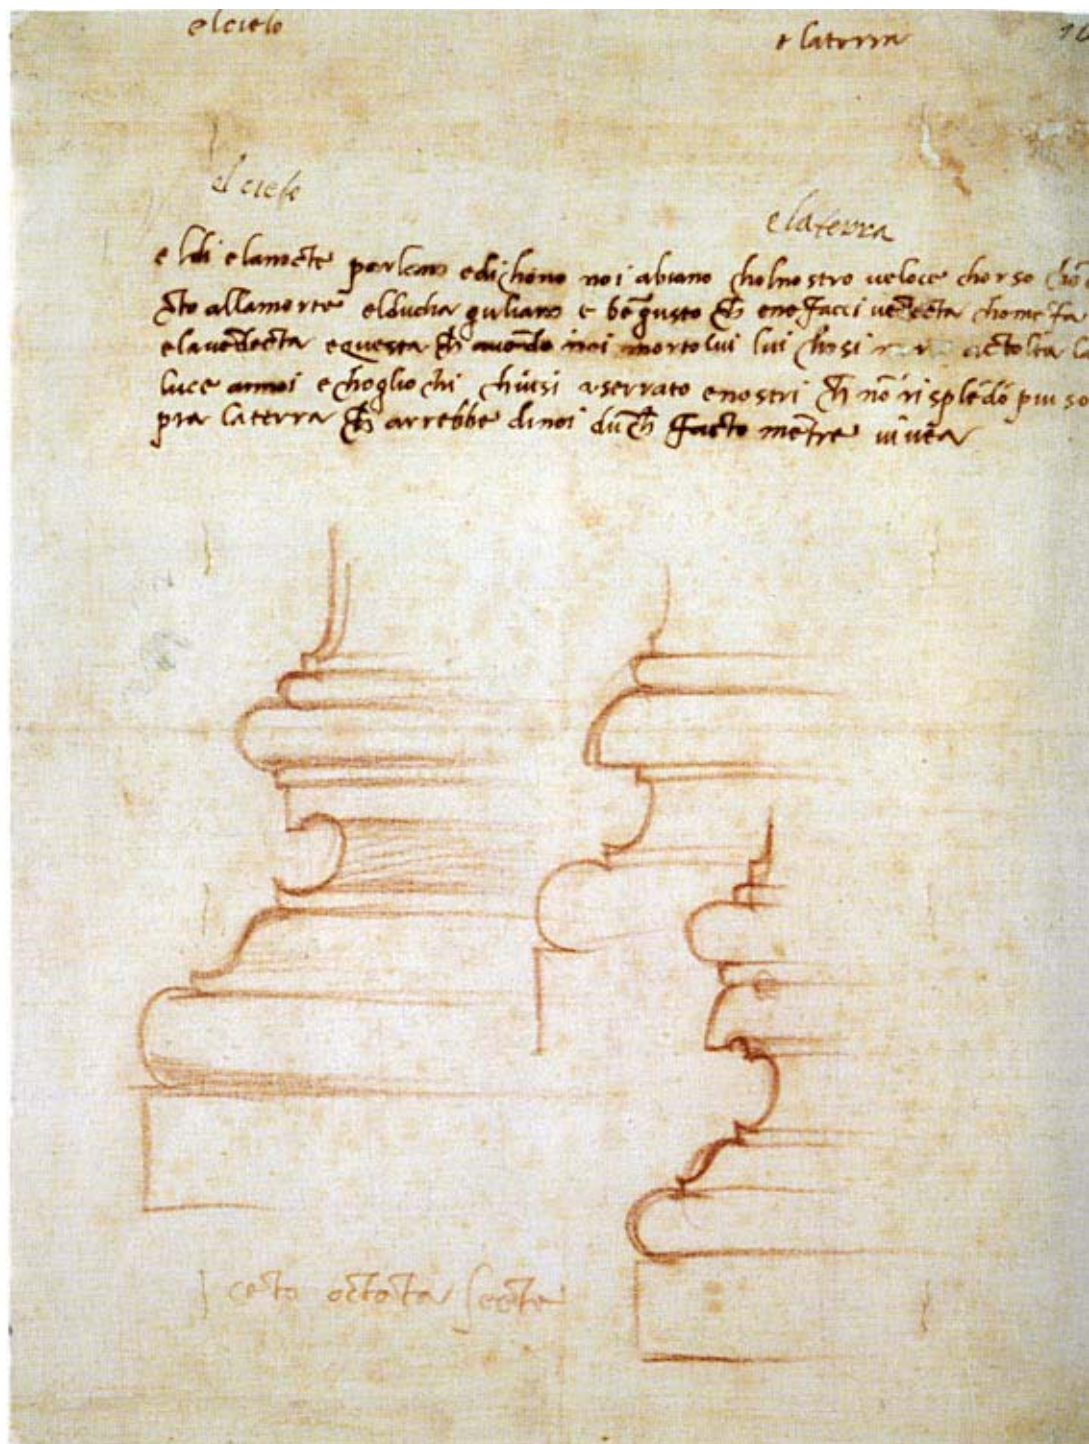 el cielo
e la terra
el cielo
e la terra
el di e la nocte parlano e dichono noi abiano chol nostro veloce chorso chō
docto alla morte el ducha guliano e bē gusto ch e ne facci vēdecta chome fa
e la vēdecta e questa ch avendo noi morto lui lui chosi a tolta la
luce a noi e chogli ochi chiusi a serrato e nostri ch nō risplēdō piu so
pra la terra ch arrebbe di noi dūch facto mētre vivea
cēto octāta secte